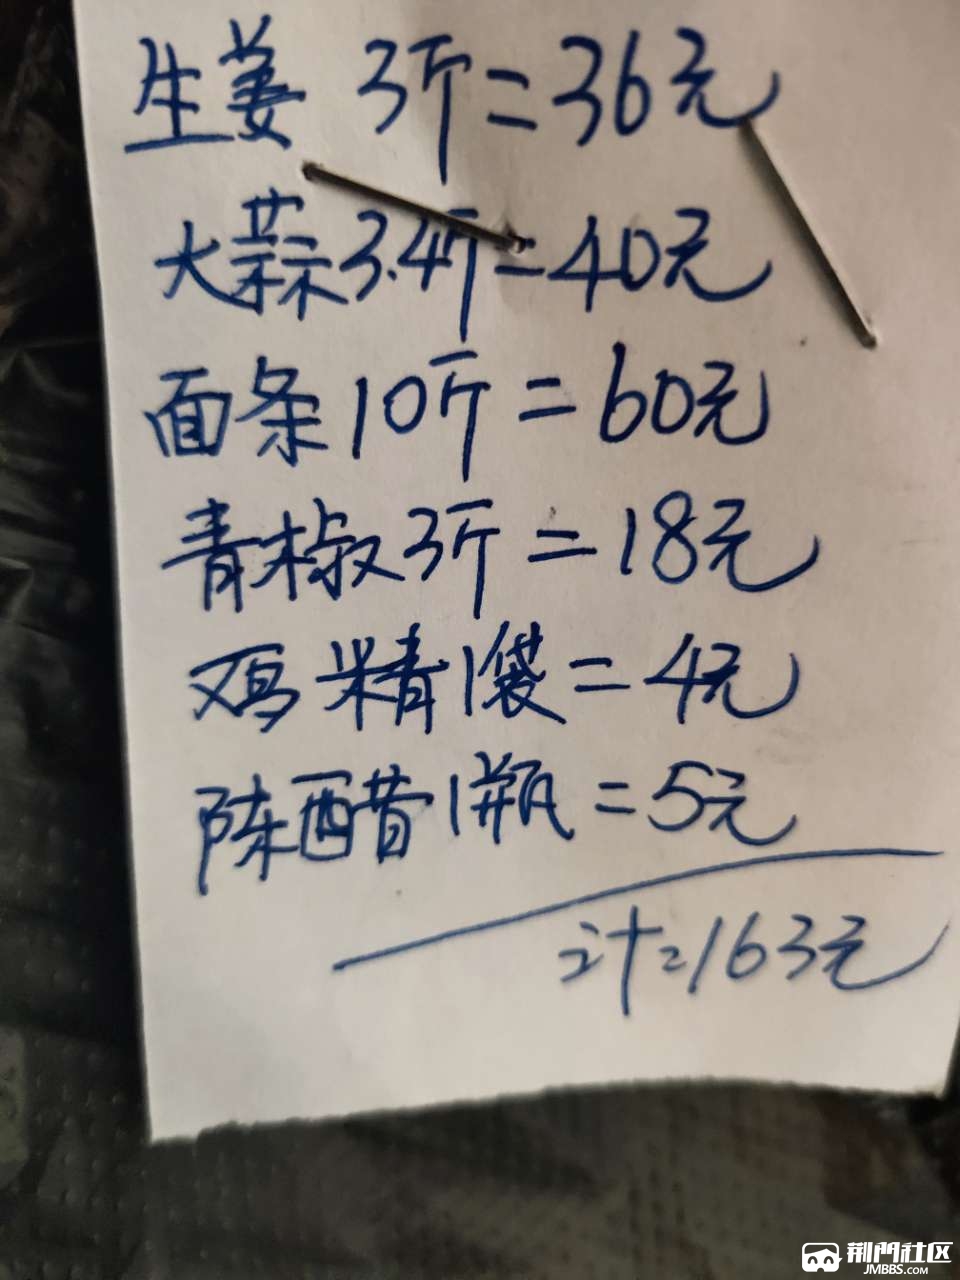 生姜 3斤=36元
大蒜3.4斤=40元
面条10斤=60元
青椒3斤=18元
鸡精1袋=4元
陈醋1瓶=5元
计=163元
荆門社区
JMBBS.COM